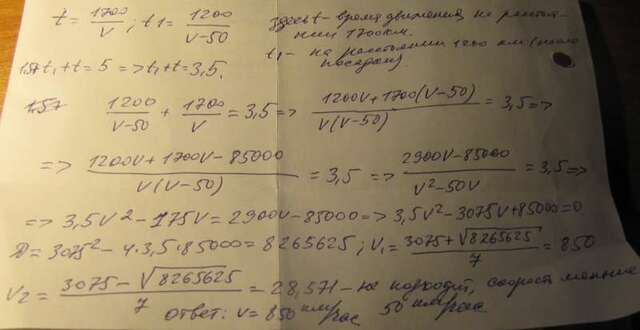 t = 1700/v ; t1 = 1200/(v-50) здесь t - время движения на расстоя-
нии 1700км.
t1 - на расстоянии 1200 км (после
посадки).
1,5+t1+t=5 => t1+t=3,5.
1200/(v-50) + 1700/v = 3,5 => (1200v+1700(v-50))/(v(v-50)) = 3,5 =>
=> (1200v+1700v-85000)/(v(v-50)) = 3,5 => (2900v-85000)/(v²-50v) = 3,5 =>
=> 3,5v²-175v=2900v-85000 => 3,5v²-3075v+85000=0
D=3075²-4·3,5·85000=8265625; v1=(3075+√8265625)/7=850
v2=(3075-√8265625)/7=28,571 - не подходит, скорость меньше
50 км/час
ответ: v=850 км/час